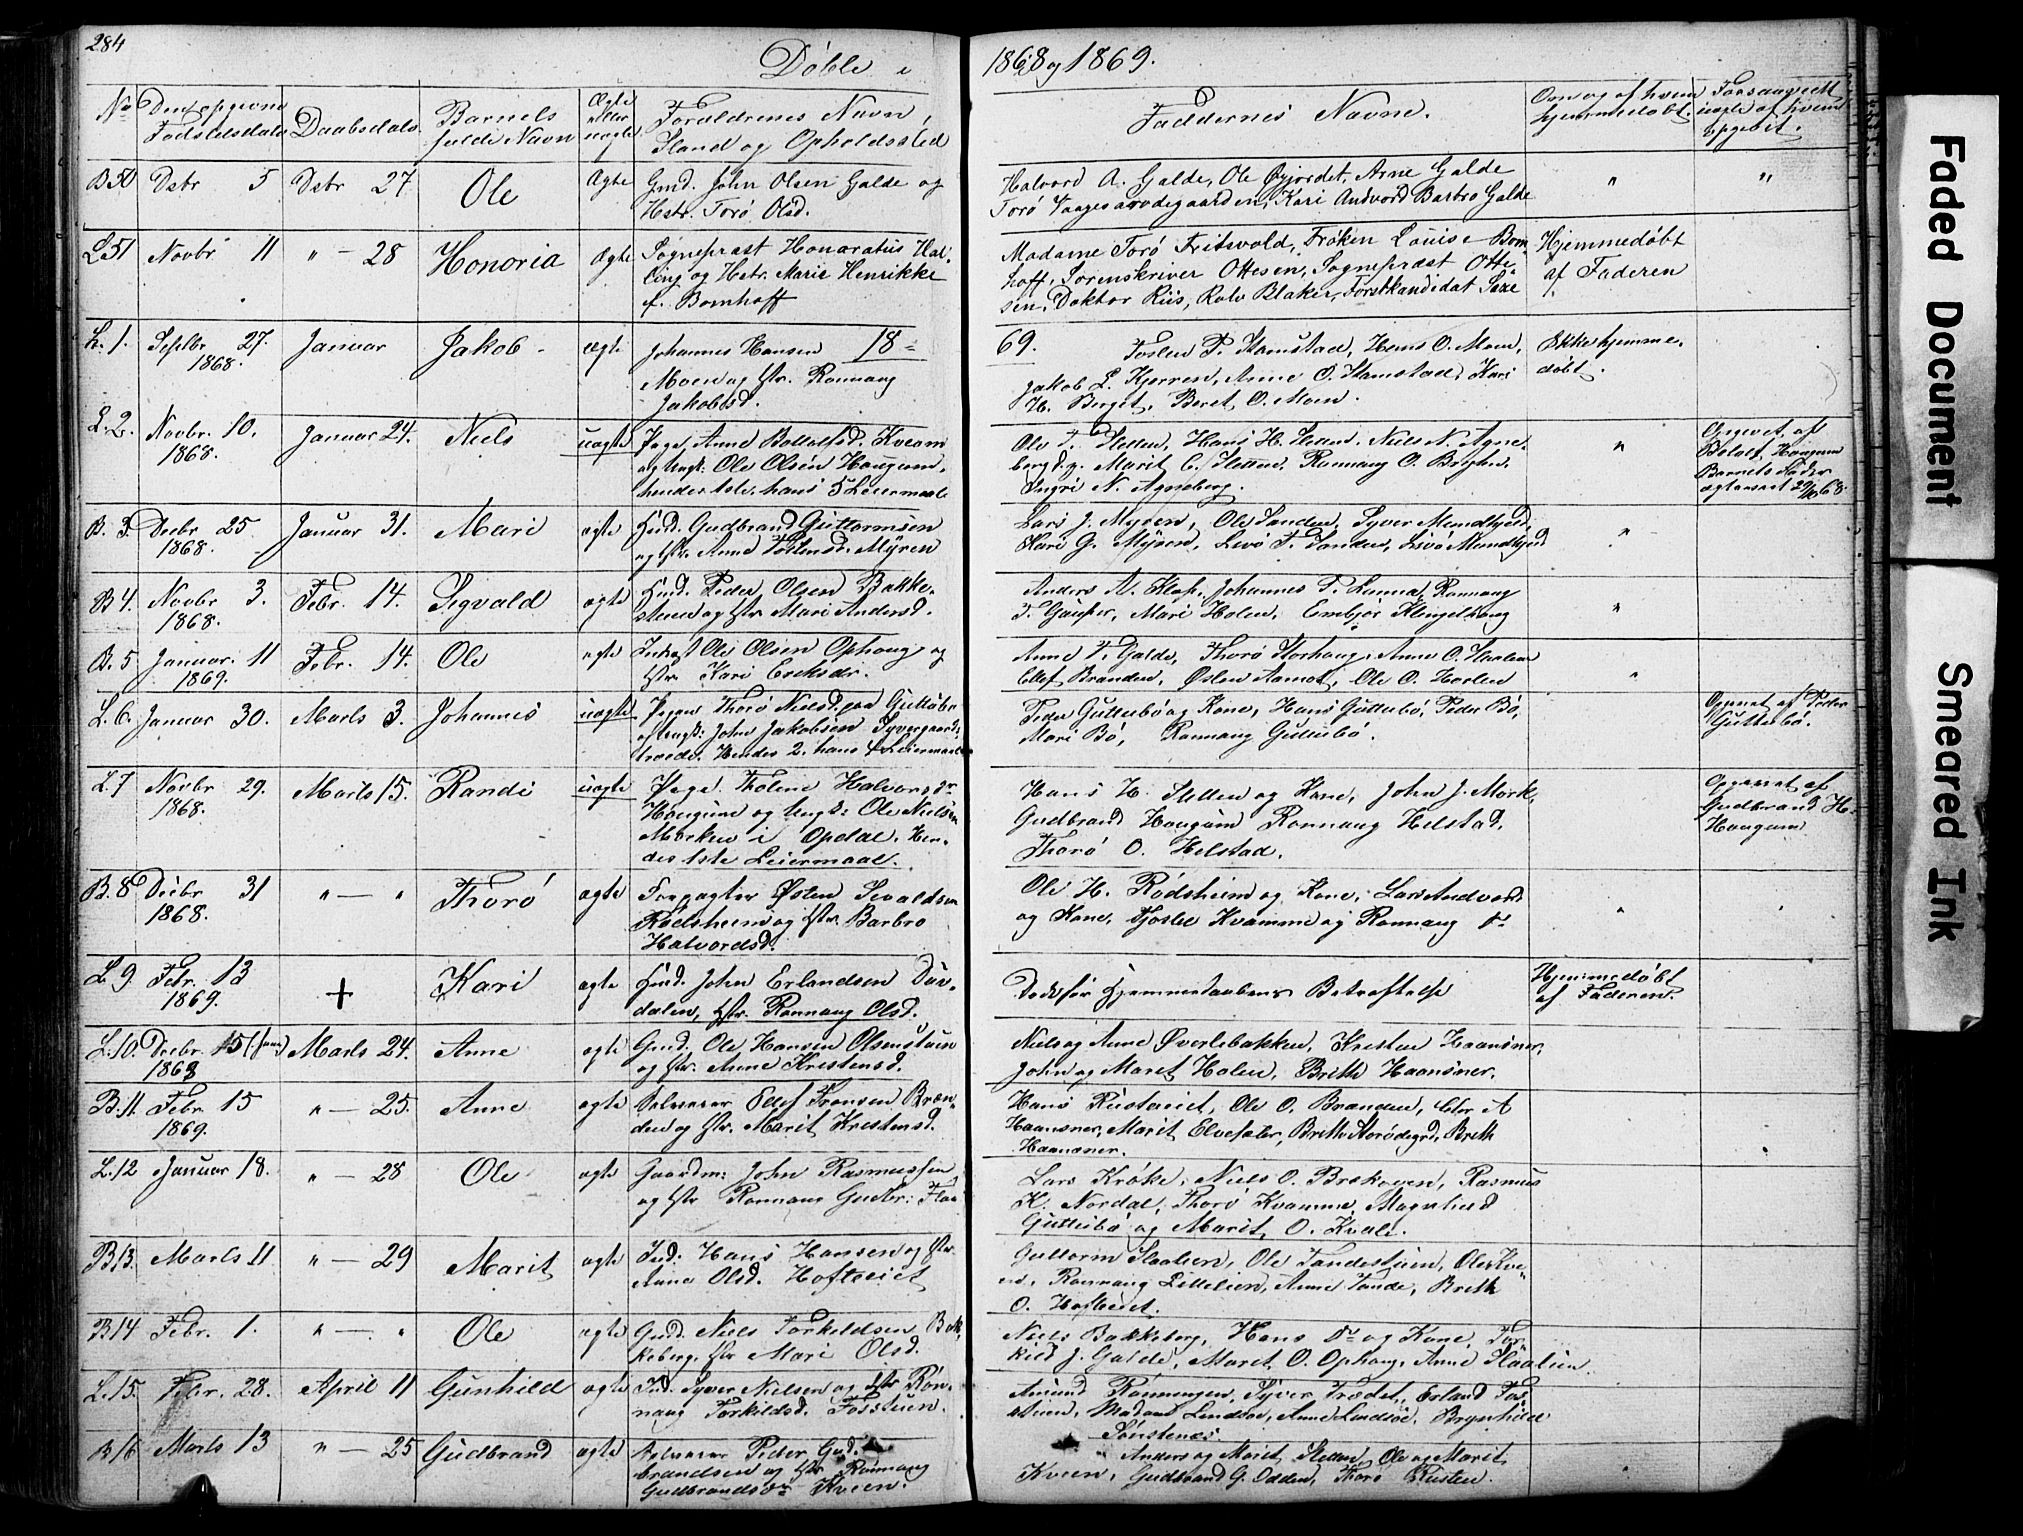 284
Døbte i 1868 og 1869.
No
Den opgivne Fødselsdato
Daabsdato
Barnets fulde Navn
Ægte eller uægte
Forældrenes Navn, Stand og Opholdssted
Faddernes Navne.
Om og af hvem hjemmedøbt.
B 50 Dsbr 5 Dsbr 27 Ole Ægte Gmd. John Olsen Galde og
Hstr. Torø Olsd.
Halvord A. Galde, Ole Øyjordet, Arne Galde
Torø Vaagesarvdegaarden, Kari Andvord Barbro Galde
" "
L 51 Novbr 11 " — 28 Honoria Ægte Sognepræst Honoratus Hal-
ling og Hstr. Marie Henrikke
f. Bomhoff
Madame Torø Fritsvold, Frøken Louise Bom-
hoff, Sorenskriver Ottesen, Sognepræst Otte-
sen, Doktor Riis, Rolv Blaker, Forstkandidat Saxe
Hjemmedøbt
af Faderen
L. 1. Septbr 27. 1868. Januar Jakob ægte Johannes Hansen
Moen og Hstr. Rønnaug
Jakobsd.
1869.
Tosten P. Hamstad, Hans O. Moen,
Jakob L. Kjerren, Anne O. Hamstad, Kari
H. Berget, Beret O. Moen.
Ikke hjemme-
døbt.
L. 2. Novbr. 10. 1868. Januar 24. Niels uægte Pige Anne Bottolfsd. Kveom
og Ungk: Ole Olsen Hougum.
hendes 1ste, hans 5 Leiermaale
Ole T. Sletten, Hans H. Sletten, Niels N. Agne-
berg d.y. Marit C. Sletten, Rønnaug O. Bryhn.
Ingri N. Agneberg.
"
Opgivet af
Botolf Hougum
Barnets Fader
B. 3. Decbr 25. 1868. Januar 31. Mari ægte Husd. Gudbrand Guttormsen
og Hstr. Anne Tostensd. Myren
Lars J. Myren, Ole Sanden, Syver Mundhjeld,
Kari G. Myren, Livø T. Sanden, Livø Mundhjeld
"
B 4. Novbr 3. 1868. Febr. 14. Segvald ægte Husd. Peder Olsen Bakke-
stuen og Hstr Mari Andersd.
Anders A. Klep, Johannes P. Lunna, Rønnaug
T. Gaupar, Mari Holen, Embjør Klingelhaug
"
B. 5 Januar. 11 1869. Febr. 14. Ole ægte Inderst Ole Olsen Ophaug og
Hstr Kari Eriksdr.
Anne T. Galde, Thorø Storhaug, Anne O. Haalien
Ellef Brænden, Østen Aamot, Ole O. Horlen
"
L. 6. Januar 30. Marts 3. Johannes uægte Pigen Thorø Nielsd. paa Guttubø
og Ungk: John Jakobsen Syvergaard-
træde. Hendes 2. hans 4 Leiermaal
Peder Guttubø og Kone, Hans Guttubø, Peder Bø,
Mari Bø, Rønnaug Guttubø.
Opgivet af Peder
Guttubø.
L. 7 Novbr 29. 1868. Marts 15. Randi uægte Pige Tholine Halvorsdr
Hougum og Ungk: Ole Nielsen
Mærken i Opdal. Hen-
des 1ste Leiermaal.
Hans H. Sletten og Kone, John J. Mork,
Gudbrand Hougum Rønnaug Helstad,
Thorø O. Helstad.
Opgivet af
Gudbrand H.
Hougum
B. 8 Decbr 31 1868. " — " Thorø ægte Forpagter Østen Sevaldsen
Rødsheim og Hstr. Barbro
Halvordsd.
Ole H. Rødsheim og Kone, Lars Andvord
og Kone, Tjostel Kvamme og Rønnaug Do
"
L. 9 Febr. 13 1869. + Kari ægte Husd. John Erlandsen Duv-
dalen, Hstr. Rønnaug Olsd.
Død før Hjemmedaabens Bekræftelse
Hjemmedøbt
af Faderen.
L. 10. Decbr 15 1868 Marts 24. Anne ægte Gmd. Ole Hansen Olsenstuen
og Hstr. Anne Kristensd.
Niels og Anne Øverlibakken, Kristen Haansner,
John og Maret Holen, Brith Haansner.
B. 11. Febr 15 1869. " — 25. Anne ægte Selveier Ellef Fransen Bræn-
den og Hstr. Marit Kristensd.
Hans Rusteeiet, Ole O. Brænden,
Haansner, Marit Elvesæter, Brith Storødegrd, Brith
Haansner.
L. 12 Januar 18. " — 28 Ole ægte Gaardm: John Rasmussen
og Hstr Rønnaug Gudbr:
Lars Krøke, Niels O. Brskoven, Rasmus
K. Nordal, Thorø Kvamme, Magnhild
Guttubø og Marit O. Kvale.
B 13. Marts 11 " — 29 Marit ægte Ind. Hans Hansen og Hstr.
Anne Olsd. Hofteeiet
Guttorm Slaalien, Ole Sandestuen, Ole Kve-
en, Rønnaug Littelien, Anne Sande, Brith
O. Hofteeiet.
B 14 Febr. 1. " — " Ole ægte Gmd. Niels Torkildsen Bak-
keberg, Hstr Mari Olsd.
Niels Bakkeberg, Hans Do og Kone, Tor-
kild J. Galde, Marit O. Ophaug, Anne Slaalien
L. 15. Febr. 28. April 11 Gunhild ægte Ind. Syver Nielsen og Hstr Røn-
naug Torkildsd. Fosstuen.
Amund Rønningen, Syver Trædet, Erland Fos-
stuen, Madam Lindsøe, Anne Lindsøe, Brynhild
Sønstenes.
B 16 Marts 13 " — 25 Gudbrand ægte Selveier Peder Gud-
brandsen og Hstr Rønnaug
Gudbrandsdr Kveen.
Anders og Marit Sletten, Ole og Marit
Kveen, Gudbrand G. Odden, Thorø Rusten.
Faded Document
Smeared Ink